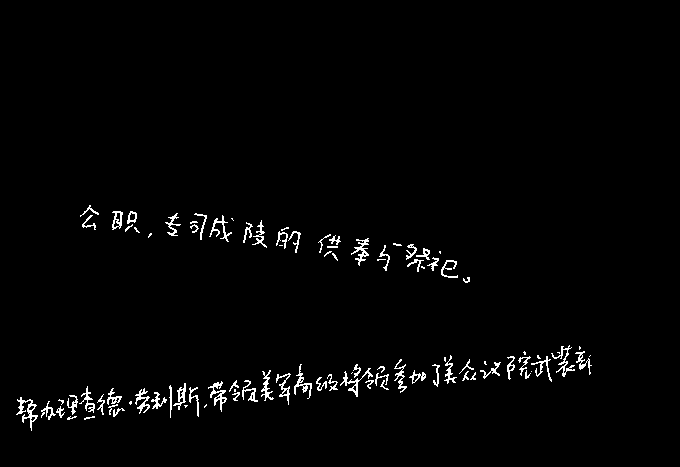 公职,专司成陵的供奉与祭祀。
帮办理查德·劳利斯,带领美军高级将领参加了美众议院武装部